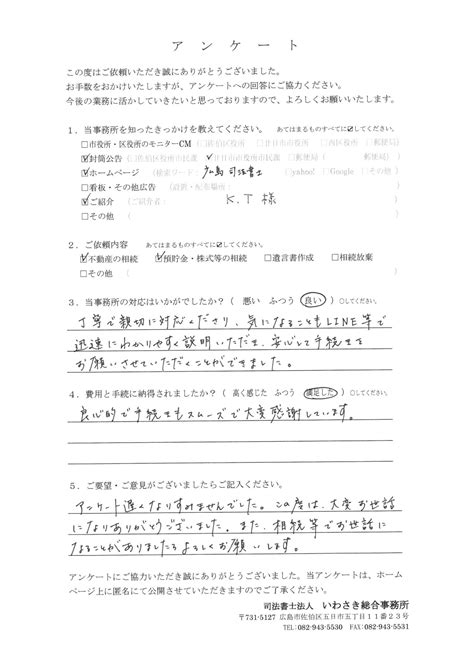 アンケート
この度はご依頼いただき誠にありがとうございました。
お手数をおかけいたしますが、アンケートへの回答にご協力ください。
今後の業務に活かしていきたいと思っておりますので、よろしくお願いいたします。
1．当事務所を知ったきっかけを教えてください。 あてはまるものすべてに☑してください。
□市役所・区役所のモニターCM （□佐伯区役所 □廿日市市役所 □西区役所 □郵便局）
☑封筒公告（□佐伯区市民課 ☑廿日市市役所市民課 □郵便局（ 郵便局）
☑ホームページ （検索ワード： 広島 司法書士 ）（□yahoo! □Google □その他 ）
□看板・その他広告 （設置・配布場所： ）
☑ご紹介 （ご紹介者： K.T 様 ）
□その他 （ ）
2．ご依頼内容 あてはまるものすべてに☑してください。
☑不動産の相続 ☑預貯金・株式等の相続 □遺言書作成 □相続放棄
□その他（ ）
3．当事務所の対応はいかがでしたか？（ 悪い ふつう 良い ）○してください。
丁寧で親切に対応くださり、気になることもLINE等で
迅速にわかりやすく説明いただき、安心して手続きを
お願いさせていただくことができました。
4．費用と手続に納得されましたか？（ 高く感じた ふつう 満足した ）○してください。
良心的で手続きもスムーズで大変感謝しています。
5．ご要望・ご意見がございましたらご記入ください。
アンケート遅くなりすみませんでした。この度は、大変お世話
になりありがとうございました。また、相続等でお世話に
なることがありましたらよろしくお願いします。
アンケートにご協力いただき誠にありがとうございました。当アンケートは、ホーム
ページ上に匿名にて公開させていただきますのでご了承ください。
司法書士法人 いわさき総合事務所
〒731-5127 広島市佐伯区五日市五丁目11番23号
TEL:082-943-5530 FAX:082-943-5531